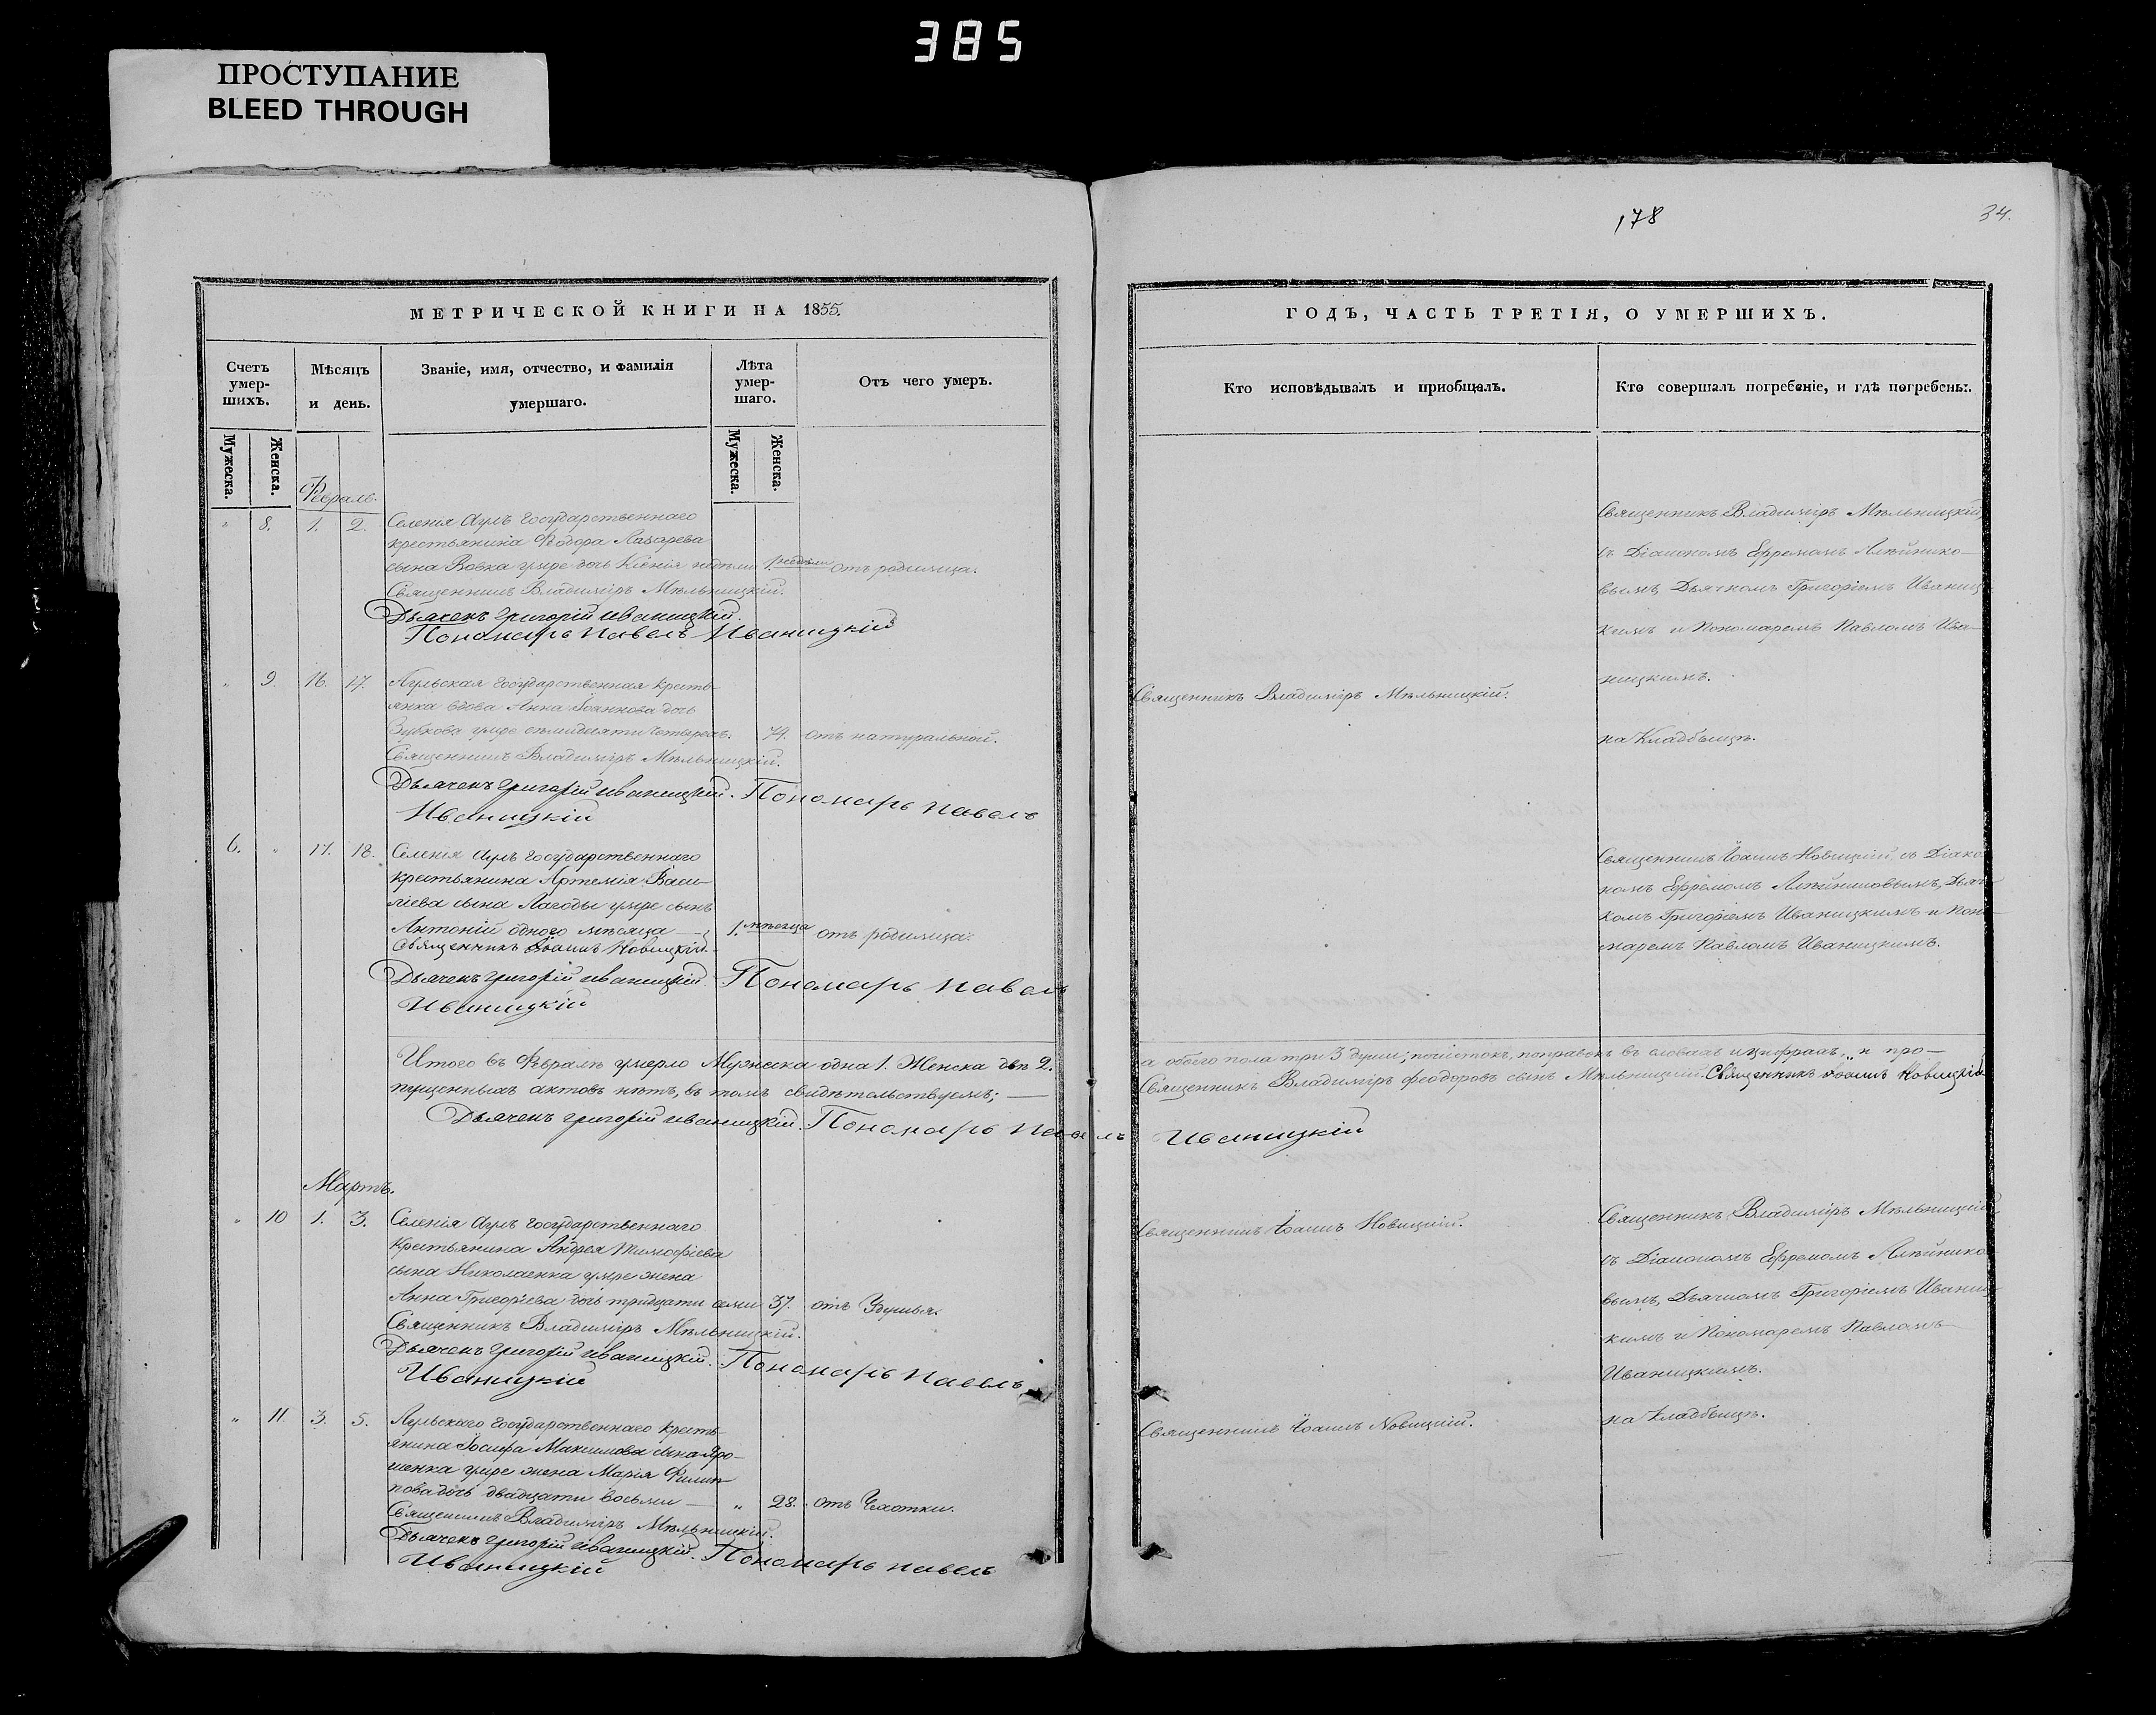 385
ПРОСТУПАНИЕ
BLEED THROUGH
МЕТРИЧЕСКОЙ КНИГИ НА 1855.
Счетъ умер-шихъ.
Мѣсяцъ и день.
Званіе, имя, отчество, и фамилія умершаго.
Лѣта умер-шаго.
Отъ чего умеръ.
Мужеска.
Женска.
Мужеска.
Женска.
Февраль.
" 8. 1. 2. Селенія Аулъ государственнаго
крестьянина Ѳеодора Лазарева
сына Вовка умре дочь недѣли 1. недѣли отъ родимца.
Священникъ Владиміръ Мѣльницкій.
Дьячекъ Григорій Иваницкій.
Пономарь Павелъ Иваницкій
" 9. 16. 17. Аульская государственная кресть-
янка вдова Анна Іоаннова дочь
Зубкова умре семидесяти четырехъ. 74. отъ натуральной.
Священникъ Владиміръ Мѣльницкій.
Дьячекъ Григорій Иваницкій. Пономарь Павелъ
Иваницкій
6. " 17. 18. Селенія Аулъ государственнаго
крестьянина Артемія Васи-
ліева сына Лагоды умре сынъ
Антоній одного мѣсяца — 1. мѣсяца отъ родимца.
Священникъ Іоаннъ Новицкій.
Дьячекъ Григорій Иваницкій. Пономарь Павелъ
Иваницкій
Итого въ Февралѣ умерло Мужеска одна 1. Женска двѣ 2.
пущенныхъ актовъ нѣтъ, въ томъ свидѣтельствуемъ; —
Дьячекъ Григорій Иваницкій. Пономарь Павелъ Иваницкій
Мартъ.
" 10 1. 3. Селенія Аулъ государственнаго
крестьянина Андрея Тимофіева
сына Николаенка умре жена
Анна Григоріева дочь тридцати семи 37. отъ
Священникъ Владиміръ Мѣльницкій.
Дьячекъ Григорій Иваницкій. Пономарь Павелъ
Иваницкій
" 11. 3. 5. Аульскаго государственнаго кресть-
янина Іосифа Максимова сына Яро-
шенка умре жена Марія Филип-
пова дочь двадцати восьми — " 28. отъ Чахотки.
Священникъ Владиміръ Мѣльницкій.
Дьячекъ Григорій Иваницкій. Пономарь Павелъ
Иваницкій
178
34.
ГОДЪ, ЧАСТЬ ТРЕТІЯ, О УМЕРШИХЪ.
Кто исповѣдывалъ и пріобщалъ.
Кто совершалъ погребеніе, и гдѣ погребены.
Священникъ Владиміръ Мѣльницкій,
съ Діакономъ Ефремомъ Алѣйнико-
вымъ, Дьячкомъ Григоріемъ Иваниц-
кимъ и Пономаремъ Павломъ Ива-
ницкимъ.
Священникъ Владиміръ Мѣльницкій.
на Кладбыщѣ.
Священникъ Іоаннъ Новицкій, съ Діако-
номъ Ефремомъ Алѣйниковымъ, Дьяч-
комъ Григоріемъ Иваницкимъ и Поно-
маремъ Павломъ Иваницкимъ.
а обоего пола три 3 души; почистокъ, поправокъ въ словахъ и цифрахъ, и про-
Священникъ Владиміръ Феодоровъ сынъ Мѣльницкій. Священникъ Іоаннъ Новицкій
Священникъ Іоаннъ Новицкій.
Священникъ Владиміръ Мѣльницкій
съ Діакономъ Ефремомъ Алѣйнико-
вымъ, Дьячкомъ Григоріемъ Иваниц-
кимъ и Пономаремъ Павломъ
Иваницкимъ.
Священникъ Іоаннъ Новицкій.
на Кладбыщѣ.